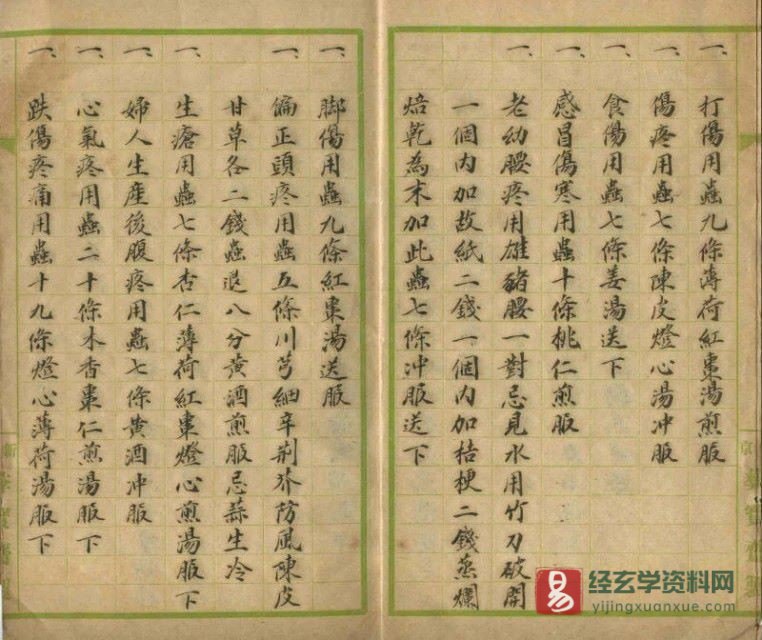 一、打傷用蟲九條薄荷紅棗湯煎服
一、傷疼用蟲七條陳皮燈心湯冲服
一、食傷用蟲七條姜湯送下
一、感冒傷寒用蟲十條桃仁煎服
一、老幼腰疼用雄豬腰一對忌見水用竹刀破開
一個內加故紙二錢一個內加桔梗二錢蒸爛
焙乾為末加此蟲七條冲服送下
一、脚傷用蟲九條紅棗湯送服
一、偏正頭疼用蟲五條川芎細辛荆芥防風陳皮
甘草各二錢蟲退八分黄酒煎服忌蒜生冷
一、生瘡用蟲七條杏仁薄荷紅棗燈心煎湯服下
一、婦人生產後腹疼用蟲七條黄酒冲服
一、心氣疼用蟲二十條木香棗仁煎湯服下
一、跌傷疼痛用蟲十九條燈心薄荷湯服下
易
经玄学资料网
yijingxuanxue.com